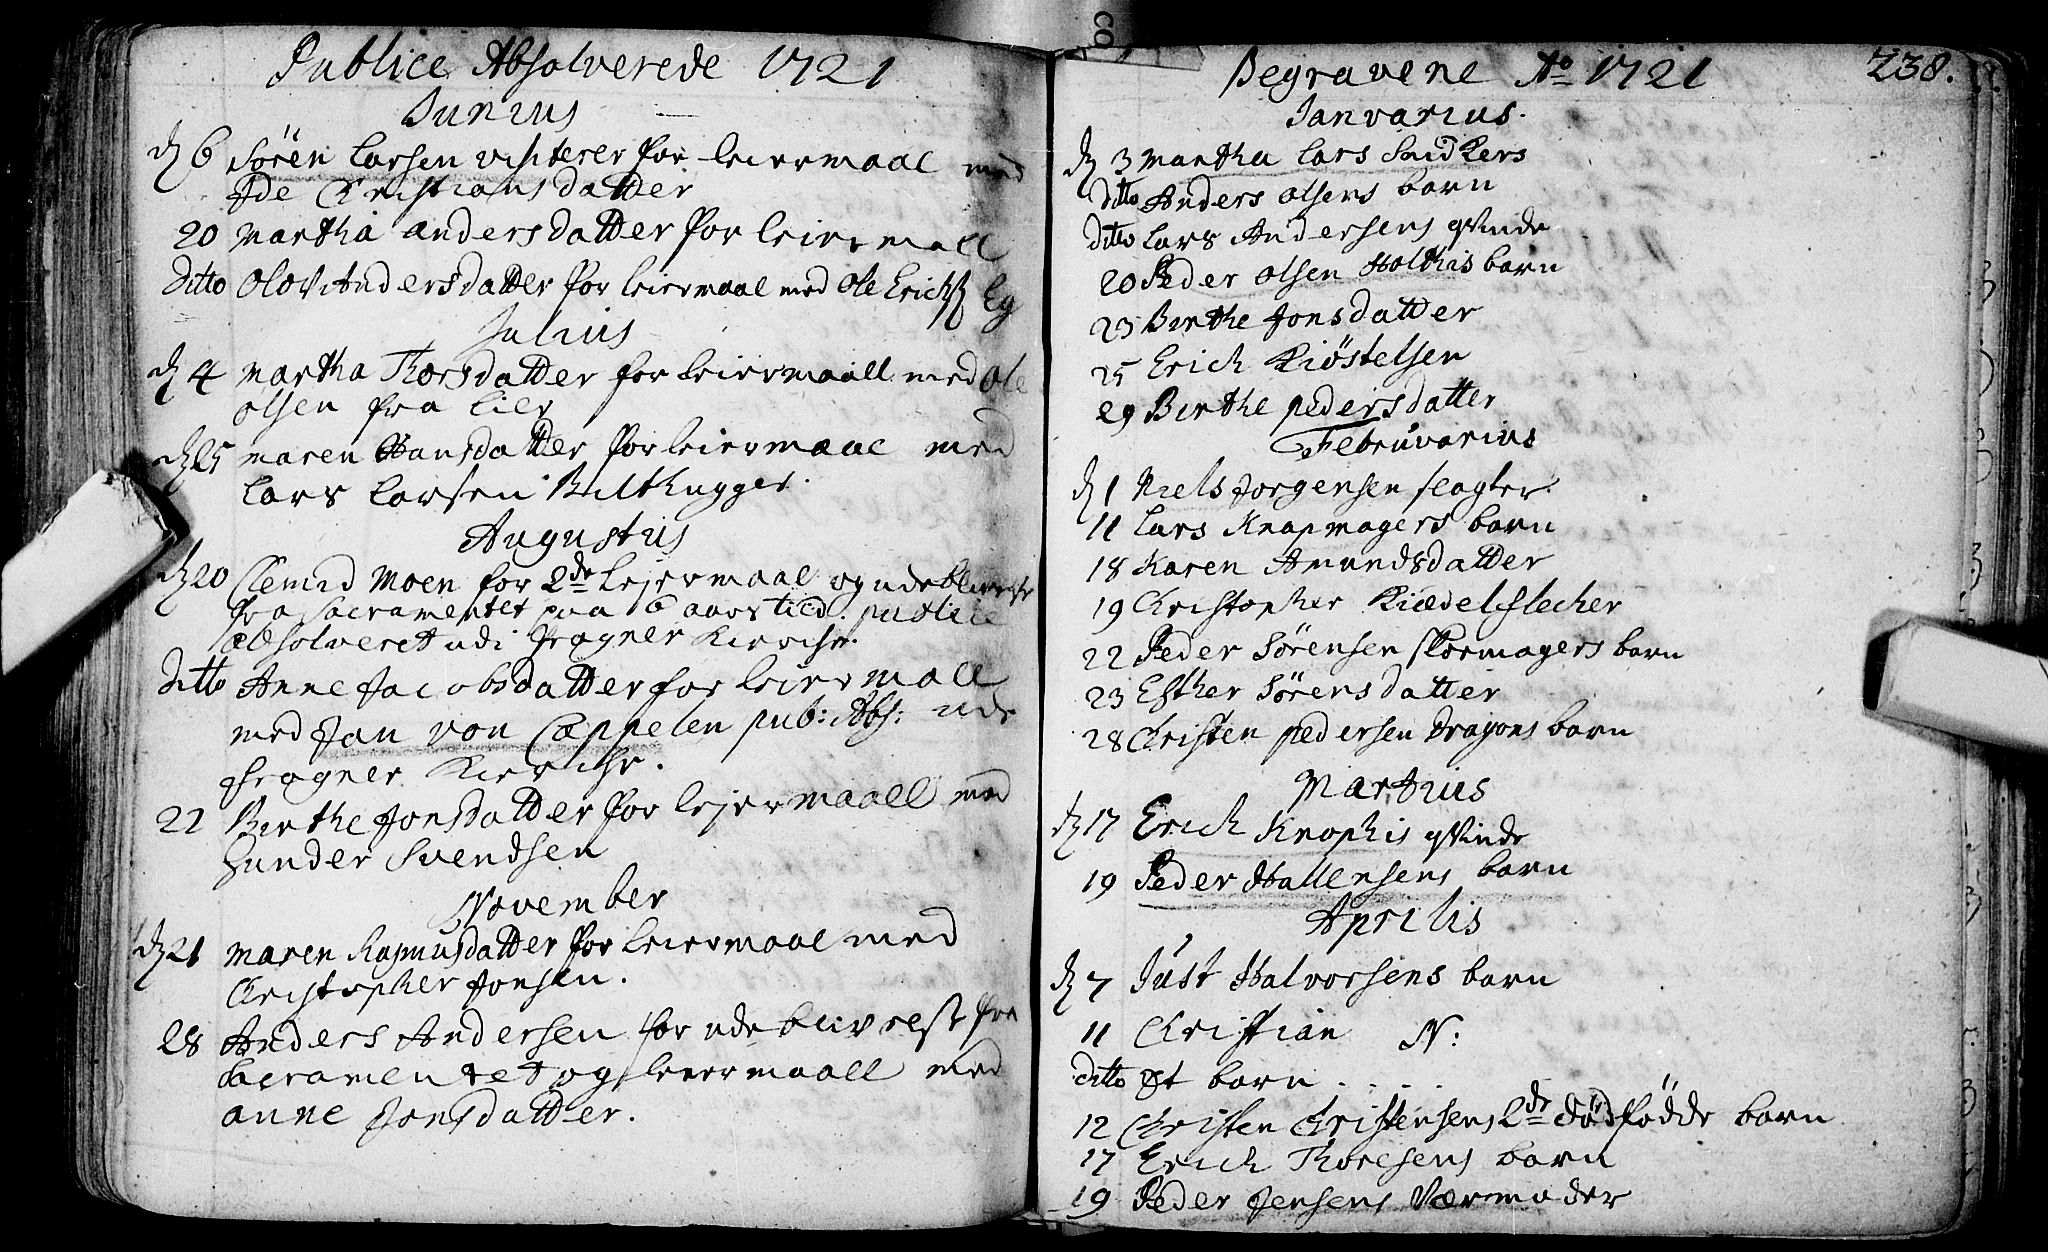 Publice Absolverede 1721
Junius
d 6 Sören Larsen visiterer for leiermaal med
Ade Christiansdatter
20 Martha andersdatter for leiermall
Ditto Olov Andersdatter for leiermaal med Ole Erichs Eg
Julius
d 4 Martha Thorsdatter for leiermaall med Ole
olsen fra Lier
d 25 maren Hansdatter for leiermaal med
Lars Larsen Bilthugger.
Augustus
d 20 Clemed Moen for 2de Lejermaal og udeblivelse
fra sacramentet paa 6 aars tiid. publice
absolveret udi Fragner Kierche.
Ditto Anne Jacobsdatter for leiermall
med Jan von Cappelen pub: Abs: udi
Fragner Kierche.
22 Berthe Jonsdatter for lejermaall med
Gunder Svendsen
November
d 21 Maren Rasmusdatter for leiermaal med
Christopher Jonsen.
28 Anders Andersen for udeblivelse fra
Sacramentet og leiermaall med
anne Jonsdatter.
Begravene Ao 1721 238.
Januarius.
d 3 Martha Lars Snidkers
ditto Anders olsens barn
ditto Lars Andersens qvinde
20 Peder olsen Holthis barn
23 Berthe Jonsdatter
25 Erich Kiöstelsen
29 Berthe pedersdatter
Februvarius
d 1 Niels Jorgensen slagter
11 Lars Knapmagers barn
18 Karen Amundsdatter
19 Christopher Kiædelflecher
22 Peder Sörensen skormagers barn
23 Esther Sörensdatter
28 Christen pedersen Dragons barn
Martius
d 17 Erich Knophis qvinde
19 Peder Hallensens barn
Aprilis
d 7 Just Halvorsens barn
11 Christian N:
ditto Et barn . . . .
12 Christen Christensens 2de dödfödde barn
17 Erich Thoresens barn
19 Peder Jensens Værmoder